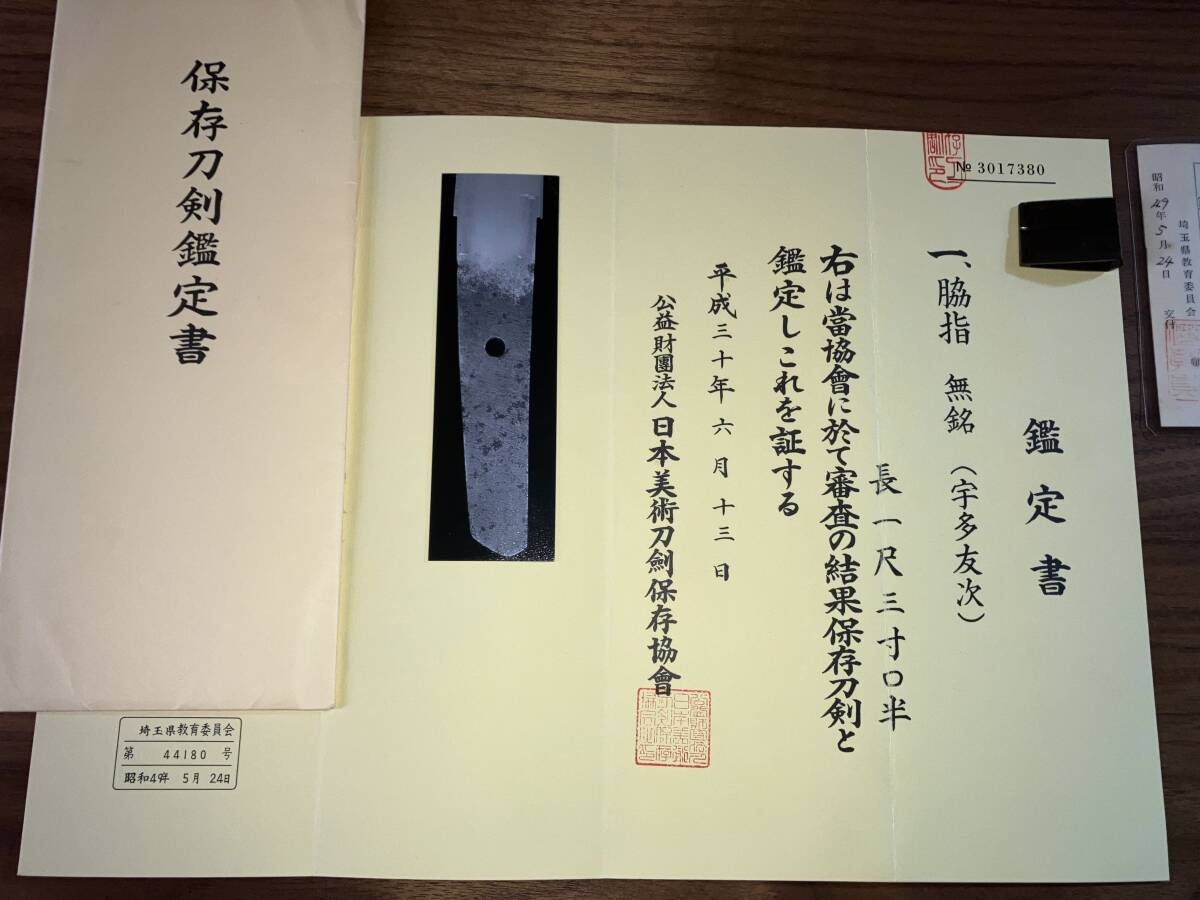 保存刀剣鑑定書
№ 3017380
鑑定書
一、脇指 無銘 (宇多友次)
長一尺三寸〇半
右は當協會に於て審査の結果保存刀剣と
鑑定しこれを証する
平成三十年六月十三日
公益財團法人日本美術刀劍保存協會
埼玉県教育委員会
第 44180 号
昭和49年 5月 24日
昭和49年5月24日 交付
埼玉県教育委員会